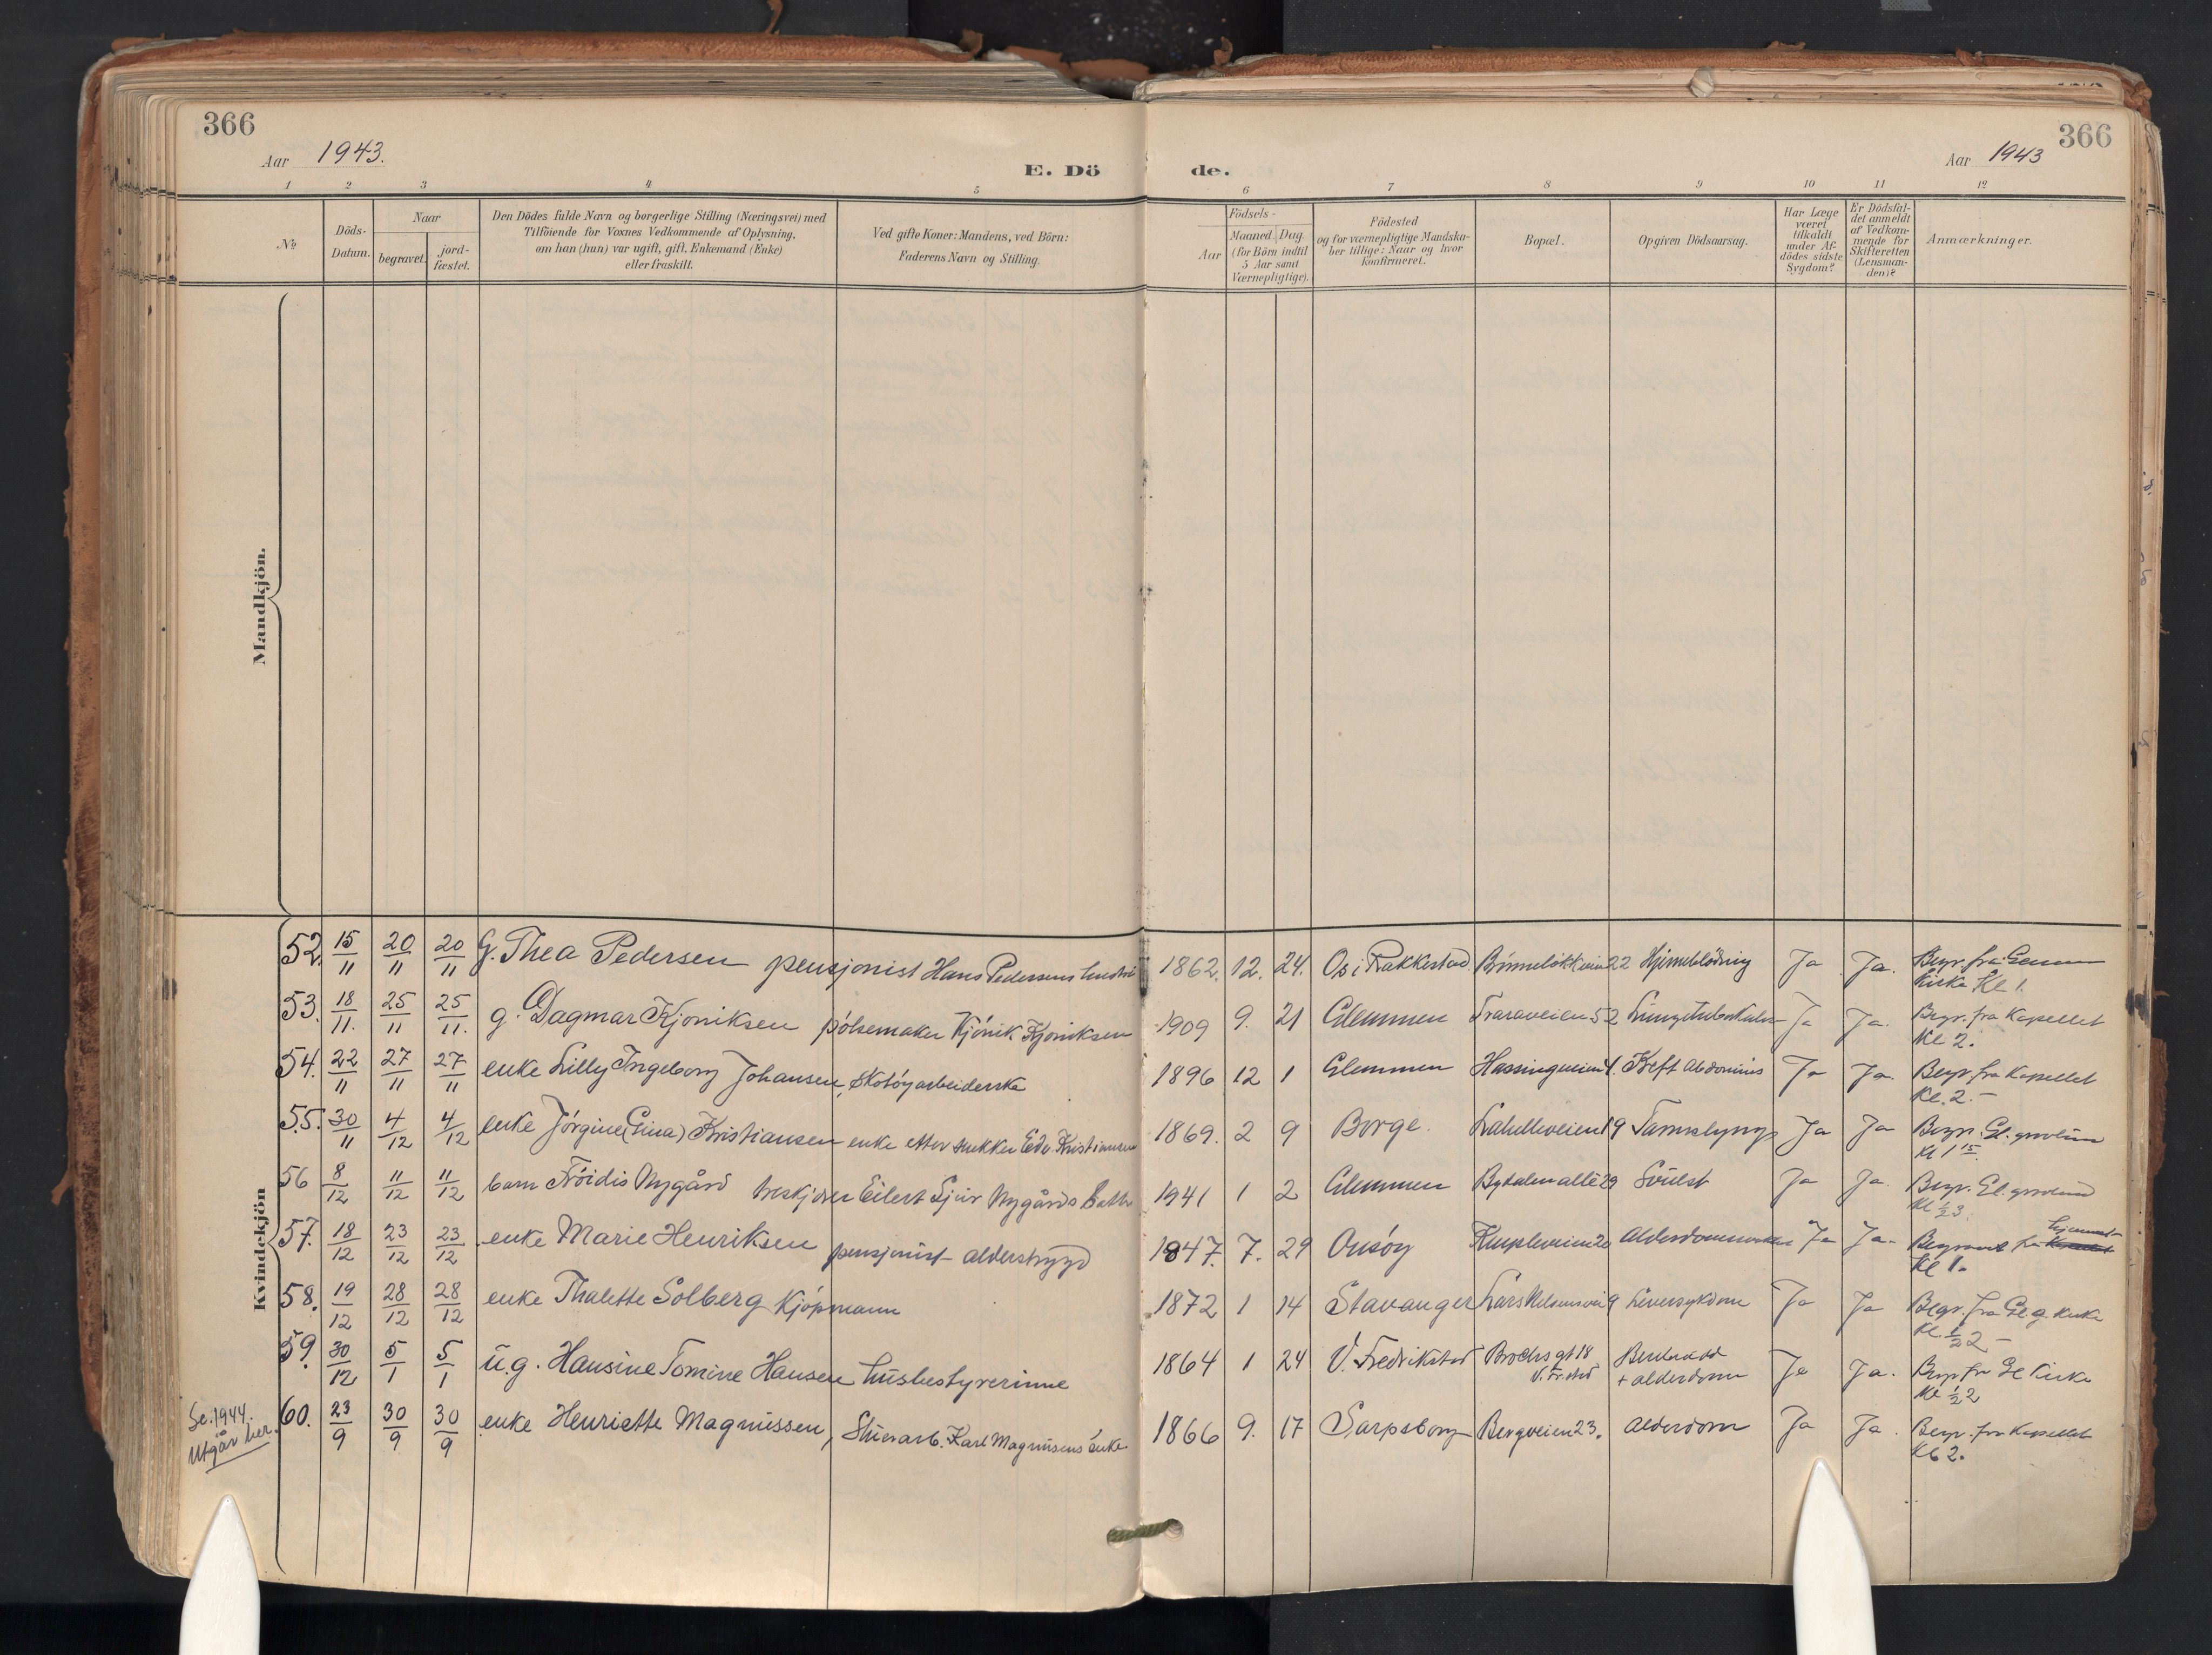 366
Aar 1943.
E. Dö
de.
Aar 1943
366
1 2 3 4 5 6 7 8 9 10 11 12
No
Döds-Datum.
Naar
begravet.
jord-fæstet.
Den Dödes fulde Navn og borgerlige Stilling (Næringsvei) med
Tilföiende for Voxnes Vedkommende af Oplysning,
om han (hun) var ugift, gift, Enkemand (Enke)
eller fraskilt.
Ved gifte Koner: Mandens, ved Börn:
Faderens Navn og Stilling.
Födsels-
Aar
Maaned. Dag
(for Börn indtil
5 Aar samt
Værnepligtige).
Födested
og for værnepligtige Mandska-
ber tillige: Naar og hvor
konfirmeret.
Bopæl.
Opgiven Dödsaarsag.
Har Læge
været
tilkaldt
under Af-
dödes sidste
Sygdom?
Er Dödsfal-
det anmeldt
af Vedkom-
mende for
Skifteretten
(Lensman-
den)?
Anmærkninger.
Mandkjön.
Kvindekjön
52. 15/11 20/11 20/11 G. Thea Pedersen pensjonist Hans Pedersens hustru 1862. 12. 24. Os i Rakkestad 22 Hjerneblödning Ja Ja. Begr. fra
Kirke Kl 1.
53. 18/11. 25/11 25/11. g. Dagmar Kjöniksen pölsemaker Kjönik Kjöniksen 1909 9. 21 Glemmen Traraveien 52 Ja Ja. Begr. fra Kapellet
Kl 2.
54. 22/11 27/11 27/11 enke Lilly Ingeborg Johansen, skotöyarbeiderske 1896 12 1 Glemmen Kreft abdominis Ja Ja Begr. fra Kapellet
Kl. 2. -
55. 30/11 4/12 4/12 enke Jörgine (Gina) Kristiansen enke etter Edv. Kristiansen 1869. 2 9 Borge. 19 Tarmslyng Ja Ja Begr. Gl. gravlund
Kl 1 15.
56 8/12 11/12 11/12 barn Fröidis Nygård Eilert Nygårds 1941 1 2 Glemmen 29 Svulst Ja Ja. Begr. Gl. gravlund
Kl ½ 3.
57. 18/12 23/12 23/12 enke Marie Henriksen pensjonist - alderstrygd 1847. 7. 29 Onsöy Ja Ja. fra hjemmet
Kl 1.
58. 19/12 28/12 28/12 enke Thalette Solberg Kjöpmann 1872 1 14 Stavanger Lars 9 Leversykdom Ja Ja Begr. fra Gl g. kirke
Kl. ½ 2 -
59. 30/12 5/1 5/1 u.g. Hansine Tomine Hansen husbestyrerinne 1864 1 24 V. Fredrikstad Brochs gt 18
V. Fr.stad
Benbrudd
+ alderdom Ja Ja. Begr fra Gl kirke
Kl ½ 2
Se. 1944.
Utgår her.
60. 23/9 30/9 30/9 enke Henriette Magnussen, Karl Magnusens enke 1866 9. 17 Sarpsborg Bergveien 23. Alderdom Ja Ja. Begr. fra Kapellet
Kl 2.